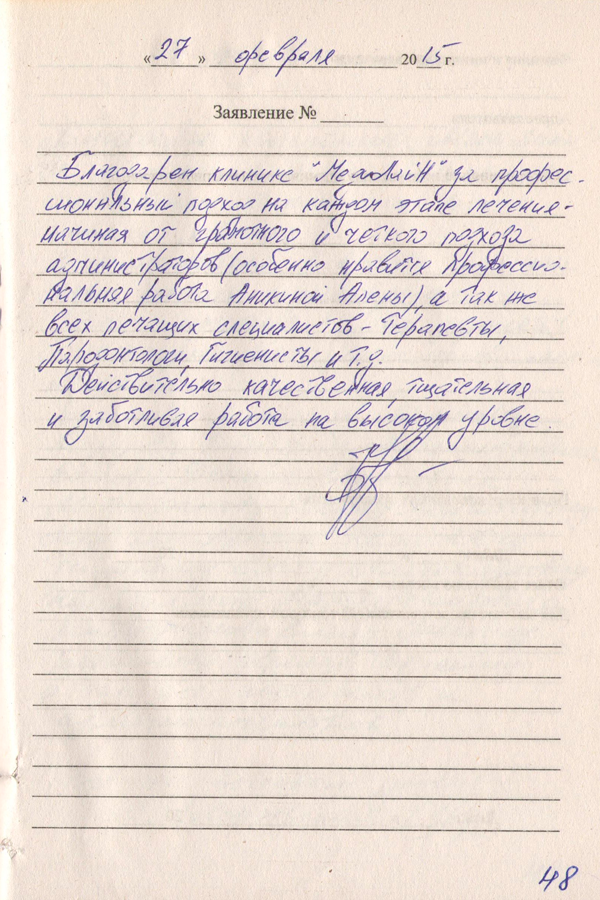 «27» февраля 2015 г.
Заявление №
Благодарен клинике "МедиЛайН" за профес-
сиональный подход на каждом этапе лечения -
начиная от грамотного и четкого подхода
администраторов (особенно нравится профессио-
нальная работа Аникиной Алены), а так же
всех лечащих специалистов - Терапевты,
Пародонтологи, Гигиенисты и т.д.
Действительно качественная, тщательная
и заботливая работа на высоком уровне.
48